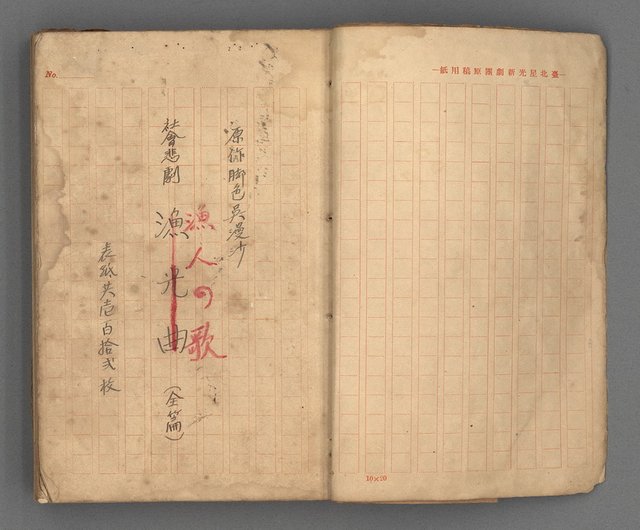 No.
臺北星光新劇團原稿用紙
原脚色吳漫沙
漁人の歌
社會悲劇 漁光曲 (全篇)
表紙共壹百拾弍枚
10×20